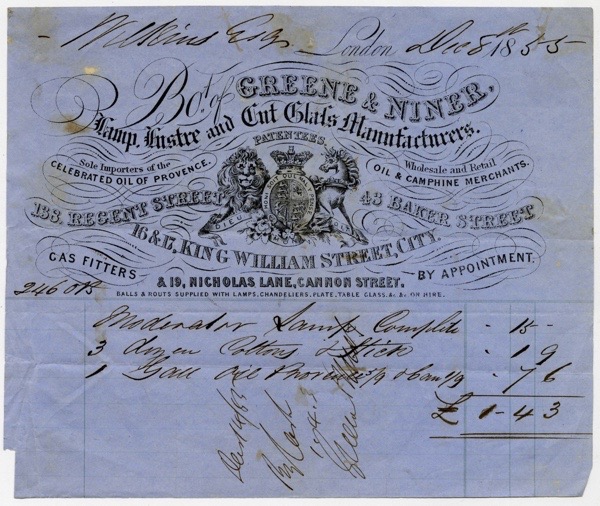 Wilkins Esq London Dec 8th 1855
Bot. of GREENE & NINER,
Lamp, Lustre and Cut Glass Manufacturers.
PATENTEES.
Sole Importers of the
CELEBRATED OIL OF PROVENCE.
Wholesale and Retail
OIL & CAMPHINE MERCHANTS.
138, REGENT STREET 43 BAKER STREET
16 & 17, KING WILLIAM STREET, CITY.
GAS FITTERS BY APPOINTMENT.
& 19, NICHOLAS LANE, CANNON STREET.
BALLS & ROUTS SUPPLIED WITH LAMPS, CHANDELIERS, PLATE, TABLE GLASS, &c. &c. ON HIRE.
Moderator Lamp Complete - 15 -
3 dozen Cottons & Stick - 1 9
1 Gall Oil - 7 6
£ 1 - 4 3
By Cash